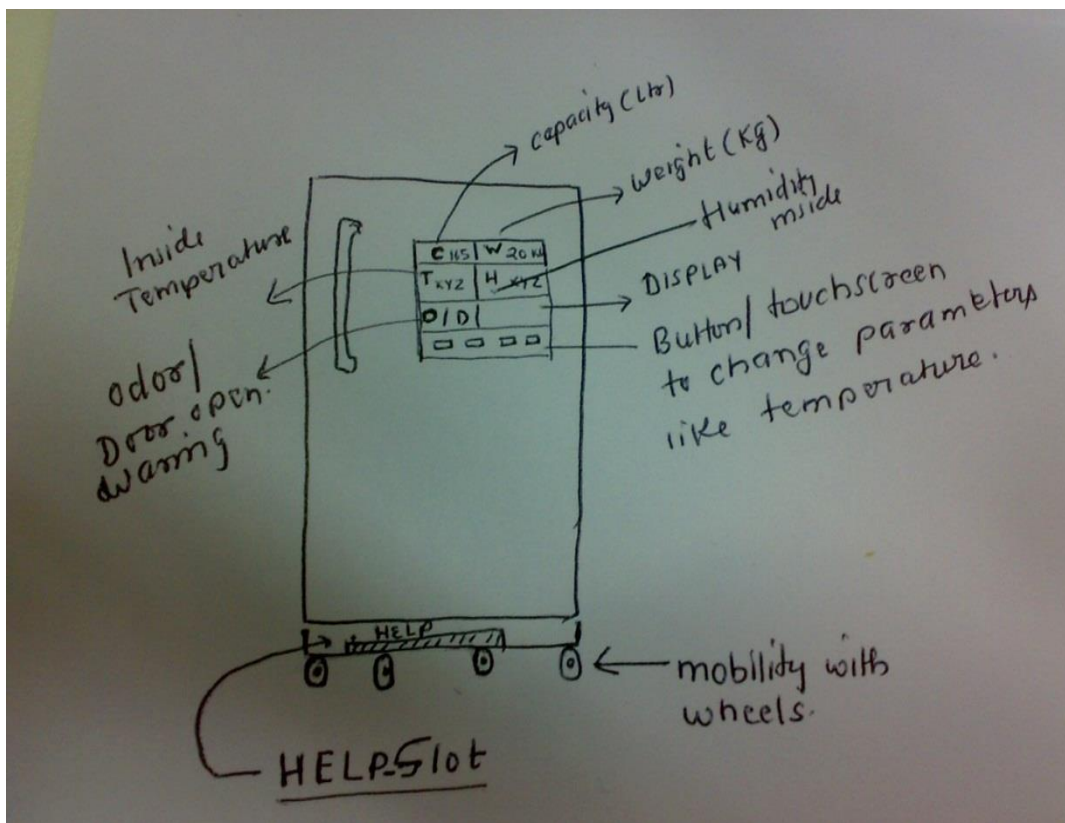 capacity (Ltr)
weight (Kg)
Humidity
inside
Inside
Temperature
C 165 W 20 Kg
T XYZ H XYZ
O / D
DISPLAY
Button/ touchscreen
to change parameters
like temperature.
odor/
Door open.
waring
HELP
mobility with
wheels.
HELP-Slot